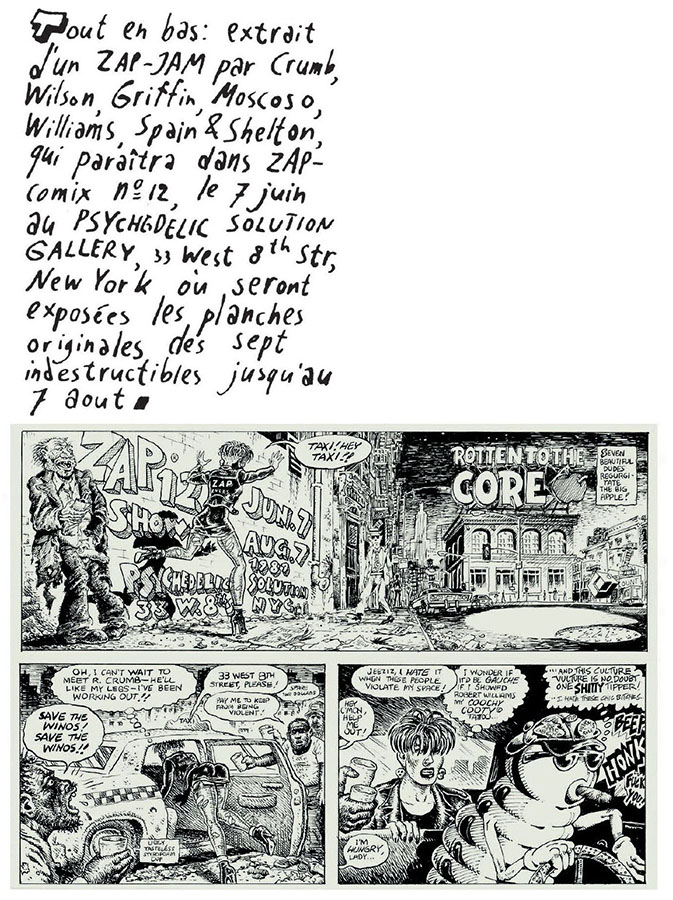 Tout en bas: extrait
d'un ZAP-JAM par Crumb,
Wilson, Griffin, Moscoso,
Williams, Spain & Shelton,
qui paraîtra dans ZAP-
comix nº12, le 7 juin
au PSYCHEDELIC SOLUTION
GALLERY, 33 West 8th Str,
New York où seront
exposées les planches
originales des sept
indestructibles jusqu'au
7 aout
ZAP·12
SHOW
JUN. 7
AUG. 7
1989
PSYCHEDELIC
SOLUTION
33 W. 8th
N.Y.C.
ZAP
TAXI! HEY
TAXI!?
ROTTEN TO THE
CORE
SEVEN
BEAUTIFUL
DUDES
REGURGI-
TATE
THE BIG
APPLE!
OH, I CAN'T WAIT TO
MEET R. CRUMB—HE'LL
LIKE MY LEGS—I'VE BEEN
WORKING OUT!!
33 WEST 8TH
STREET, PLEASE!
PAY ME TO KEEP
FROM BEING
VIOLENT!
SAVE THE
WINOS!
SAVE THE
WINOS!!
TAXI
UGLY
TASTELESS
STYROFOAM
CUP
JEEZIZ, I HATE IT
WHEN THESE PEOPLE
VIOLATE MY SPACE!
I WONDER IF
IT'D BE GAUCHE
IF I SHOWED
ROBERT WILLIAMS
MY COOCHY
COOTY
TATOO
...AND THIS CULTURE
VULTURE IS, NO DOUBT
ONE SHITTY TIPPER!
I HATE THESE CHIC BITCHES.
HEY, C'MON
HELP
ME
OUT!
I'M
HUNGRY,
LADY...
BEEP
HONK
FUCK
YOU